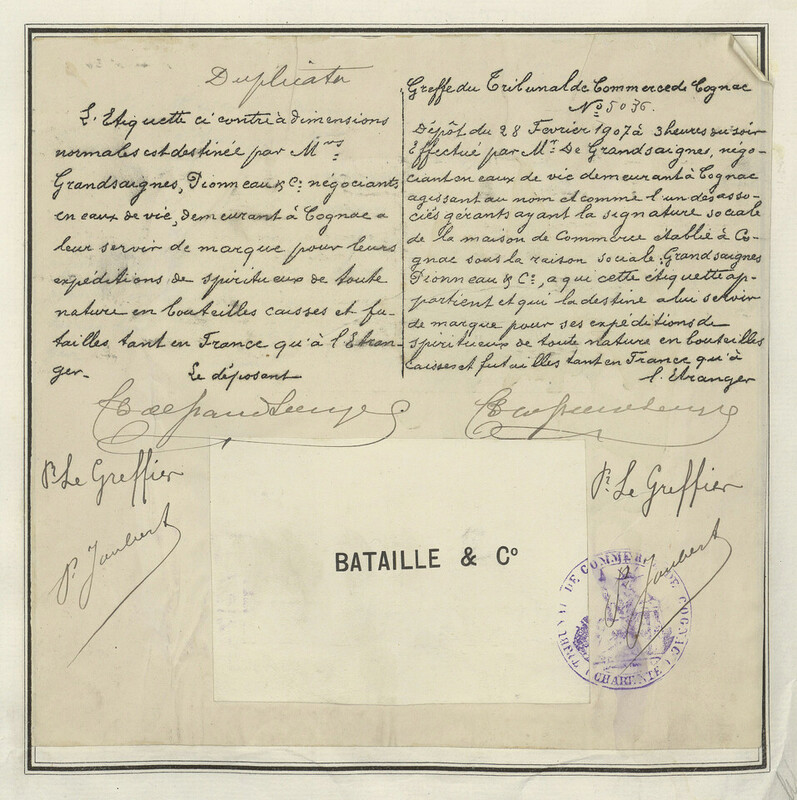 Duplicata
L'Etiquette ci contre à dimensions
normales est destinée par Mrs
Grandsaignes, Pionneau & Cie négociants
en eaux de vie, demeurant à Cognac a
leur servir de marque pour leurs
expéditions de spiritueux de toute
nature en bouteilles caisses et fu-
tailles, tant en France qu'à l'Etran-
ger.
Le déposant
Greffe du Tribunal de Commerce de Cognac
No 5036.
Dépôt du 28 Février 1907 à 3 heures du soir
Effectué par Mr De Grandsaignes, négo-
ciant en eaux de vie demeurant à Cognac
agissant au nom et comme l'un des asso-
ciés gérants ayant la signature sociale
de la maison de Commerce établie à Co-
gnac sous la raison sociale: Grandsaignes
Pionneau & Cie, a qui cette étiquette ap-
partient et qui la destine a lui servir
de marque pour ses expéditions de
spiritueux de toute nature en bouteilles
caisses et futailles tant en France qu'à
l'Etranger
Pr Le Greffier
P. Joubert
Pr Le Greffier
Joubert
BATAILLE & Co
TRIBUNAL DE COMMERCE DE COGNAC
(CHARENTE)